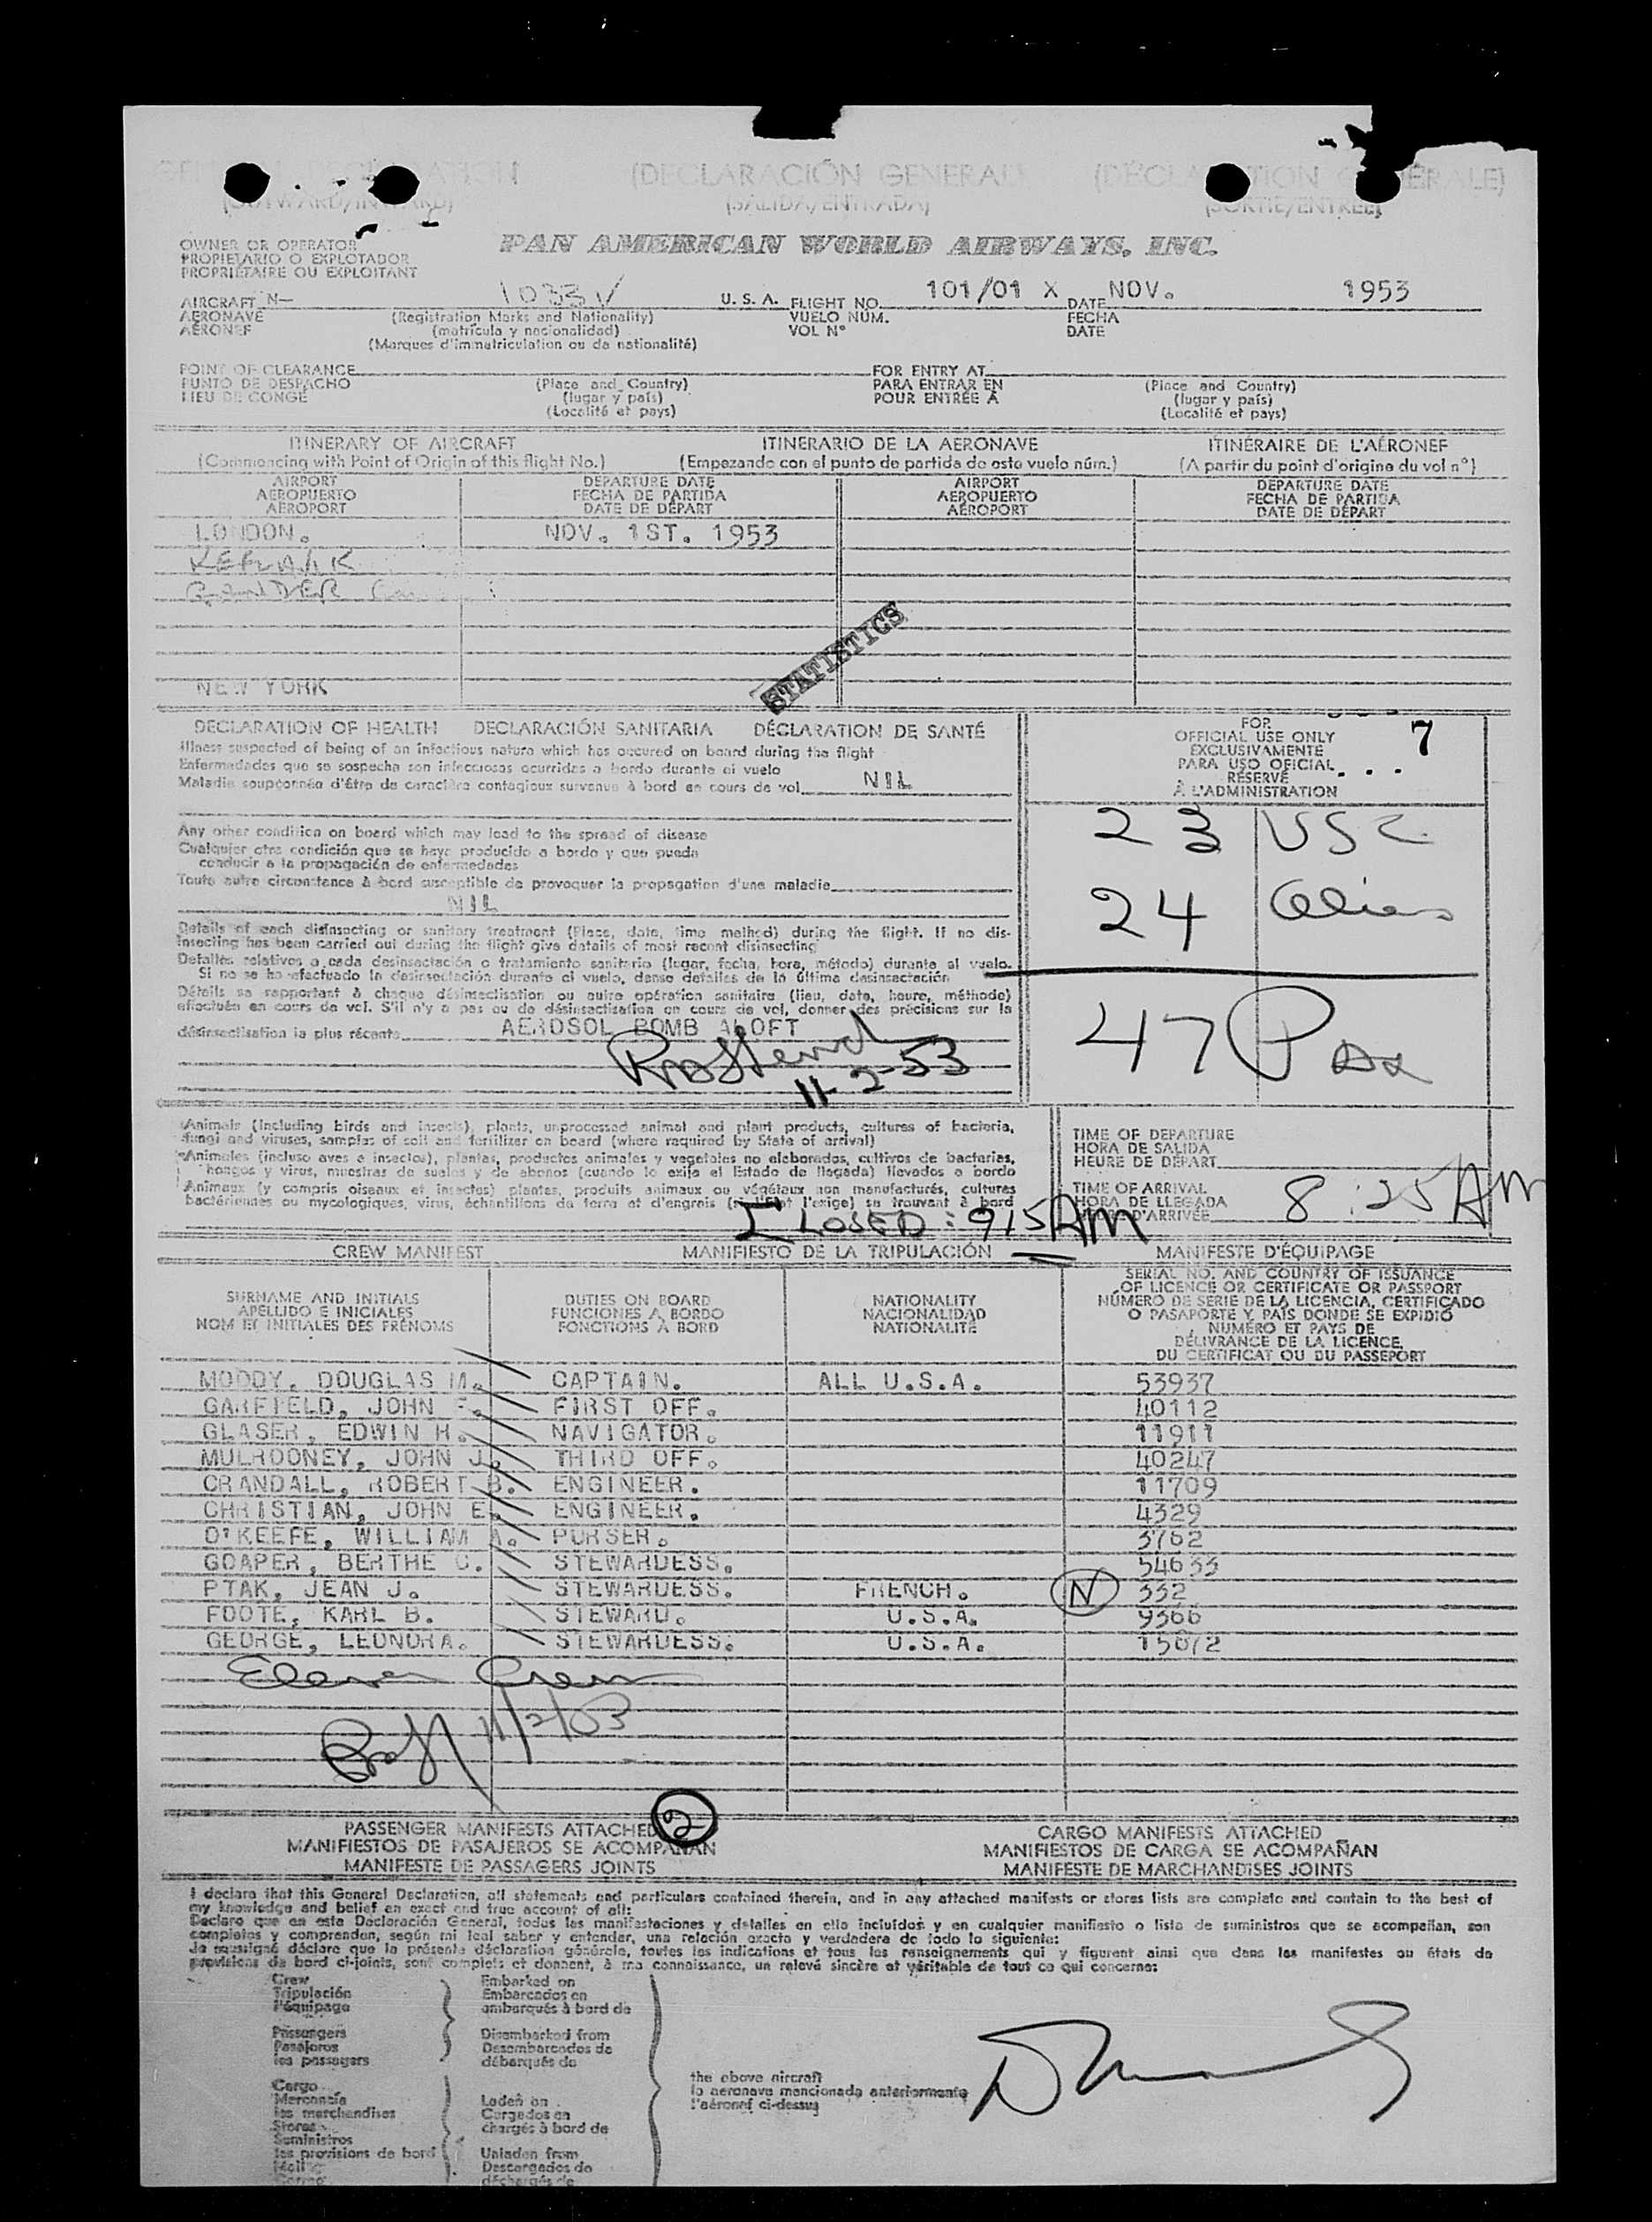 (DECLARACIÓN GENERAL)
(SALIDA/ENTRADA)
(SORTIE/ENTRÉE)
OWNER OR OPERATOR
PROPIETARIO O EXPLOTADOR
PROPRIÉTAIRE OU EXPLOITANT
PAN AMERICAN WORLD AIRWAYS, INC.
AIRCRAFT N— 1033V U. S. A. FLIGHT NO. 101/01 X DATE NOV. 1953
AERONAVE (Registration Marks and Nationality) VUELO NÚM. FECHA
AÉRONEF (matrícula y nacionalidad) VOL N° DATE
(Marques d'immatriculation ou de nationalité)
POINT OF CLEARANCE FOR ENTRY AT
PUNTO DE DESPACHO (Place and Country) PARA ENTRAR EN (Place and Country)
LIEU DE CONGÉ (lugar y país) POUR ENTRÉE À (lugar y país)
(Localité et pays) (Localité et pays)
ITINERARY OF AIRCRAFT ITINERARIO DE LA AERONAVE ITINÉRAIRE DE L'AÉRONEF
(Commencing with Point of Origin of this flight No.) (Empezando con el punto de partida de este vuelo núm.) (A partir du point d'origine du vol n°)
AIRPORT DEPARTURE DATE AIRPORT DEPARTURE DATE
AEROPUERTO FECHA DE PARTIDA AEROPUERTO FECHA DE PARTIDA
AÉROPORT DATE DE DÉPART AÉROPORT DATE DE DÉPART
LONDON. NOV. 1ST. 1953
KEFLAVIK
GANDER
STATISTICS
NEW YORK
DECLARATION OF HEALTH DECLARACIÓN SANITARIA DÉCLARATION DE SANTÉ
Illness suspected of being of an infectious nature which has occured on board during the flight
Enfermedades que se sospecha son infecciosas ocurridas a bordo durante el vuelo
Maladie soupçonnée d'être de caractère contagieux survenue à bord en cours de vol NIL
FOR
OFFICIAL USE ONLY 7
EXCLUSIVAMENTE
PARA USO OFICIAL
RÉSERVÉ
À L'ADMINISTRATION
23 USC
24 Aliens
47 Pax
Any other condition on board which may lead to the spread of disease
Cualquier otra condición que se haya producido a bordo y que pueda
conducir a la propagación de enfermedades
Toute autre circonstance à bord susceptible de provoquer la propagation d'une maladie
NIL
Details of each disinsecting or sanitary treatment (Place, date, time method) during the flight. If no dis-
insecting has been carried out during the flight give details of most recent disinsecting
Detalles relativos a cada desinsectación o tratamiento sanitario (lugar, fecha, hora, método) durante el vuelo.
Si no se ha efectuado la desinsectación durante el vuelo, dense detalles de la última desinsectación
Détails se rapportant à chaque désinsectisation ou autre opération sanitaire (lieu, date, heure, méthode)
effectués en cours de vol. S'il n'y a pas eu de désinsectisation en cours de vol, donner des précisions sur la
désinsectisation la plus récente AEROSOL BOMB ALOFT
11-2-53
Animals (including birds and insects), plants, unprocessed animal and plant products, cultures of bacteria,
fungi and viruses, samples of soil and fertilizer on board (where required by State of arrival)
Animales (incluso aves e insectos), plantas, productos animales y vegetales no elaborados, cultivos de bacterias,
hongos y virus, muestras de suelos y de abonos (cuando lo exija el Estado de llegada) llevados a bordo
Animaux (y compris oiseaux et insectes) plantes, produits animaux ou végétaux non manufacturés, cultures
bactériennes ou mycologiques, virus, échantillons de terre et d'engrais (si l'Etat l'exige) se trouvant à bord
CLOSED: 915 AM
TIME OF DEPARTURE
HORA DE SALIDA
HEURE DE DÉPART
TIME OF ARRIVAL
HORA DE LLEGADA 8:25 AM
D'ARRIVÉE
CREW MANIFEST MANIFIESTO DE LA TRIPULACIÓN MANIFESTE D'ÉQUIPAGE
SURNAME AND INITIALS DUTIES ON BOARD NATIONALITY SERIAL NO. AND COUNTRY OF ISSUANCE
APELLIDO E INICIALES FUNCIONES A BORDO NACIONALIDAD OF LICENCE OR CERTIFICATE OR PASSPORT
NOM ET INITIALES DES PRÉNOMS FONCTIONS À BORD NATIONALITÉ NÚMERO DE SERIE DE LA LICENCIA, CERTIFICADO
O PASAPORTE Y PAÍS DONDE SE EXPIDIÓ
NUMÉRO ET PAYS DE
DÉLIVRANCE DE LA LICENCE,
DU CERTIFICAT OU DU PASSEPORT
MOODY, DOUGLAS M. CAPTAIN. ALL U.S.A. 53937
GARFIELD, JOHN F. FIRST OFF. 40112
GLASER, EDWIN H. NAVIGATOR. 11911
MULROONEY, JOHN J. THIRD OFF. 40247
CRANDALL, ROBERT B. ENGINEER. 11709
CHRISTIAN, JOHN E. ENGINEER. 4329
O'KEEFE, WILLIAM A. PURSER. 3762
GOAPER, BERTHE C. STEWARDESS. 54633
PTAK, JEAN J. STEWARDESS. FRENCH. N 332
FOOTE, KARL B. STEWARD. U.S.A. 9366
GEORGE, LEONORA. STEWARDESS. U.S.A. 15072
Eleven Crew
11/2/53
2
PASSENGER MANIFESTS ATTACHED CARGO MANIFESTS ATTACHED
MANIFIESTOS DE PASAJEROS SE ACOMPAÑAN MANIFIESTOS DE CARGA SE ACOMPAÑAN
MANIFESTE DE PASSAGERS JOINTS MANIFESTE DE MARCHANDISES JOINTS
I declare that this General Declaration, all statements and particulars contained therein, and in any attached manifests or stores lists are complete and contain to the best of
my knowledge and belief an exact and true account of all:
Declaro que en esta Declaración General, todos las manifestaciones y detalles en ella incluidos y en cualquier manifiesto o lista de suministros que se acompañan, son
completos y comprenden, según mi leal saber y entender, una relación exacta y verdadera de todo lo siguiente:
Je soussigné déclare que la présente déclaration générale, toutes les indications et tous les renseignements qui y figurent ainsi que dans les manifestes ou états de
provisions de bord ci-joints, sont complets et donnent, à ma connaissance, un relevé sincère et véritable de tout ce qui concerne:
Crew Embarked on
Tripulación Embarcados en
l'équipage embarqués à bord de
Passengers Disembarked from
Pasajeros Desembarcados de
les passagers débarqués de
the above aircraft
la aeronave mencionada anteriormente
l'aéronef ci-dessus
Cargo
Mercancía Laden on
les marchandises Cargados en
Stores chargés à bord de
Suministros
les provisions de bord Unladen from
Mail Descargados de
Correo déchargés de